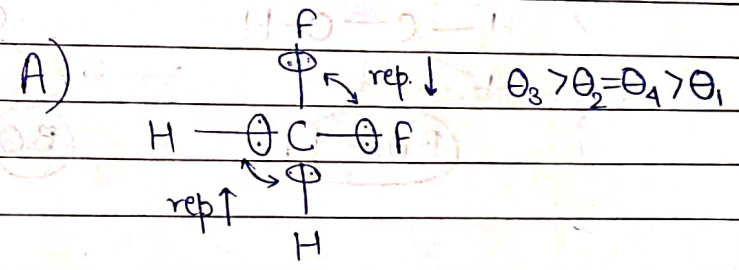 F
A) rep. ↓ θ₃ > θ₂ = θ₄ > θ₁
H C F
rep ↑
H